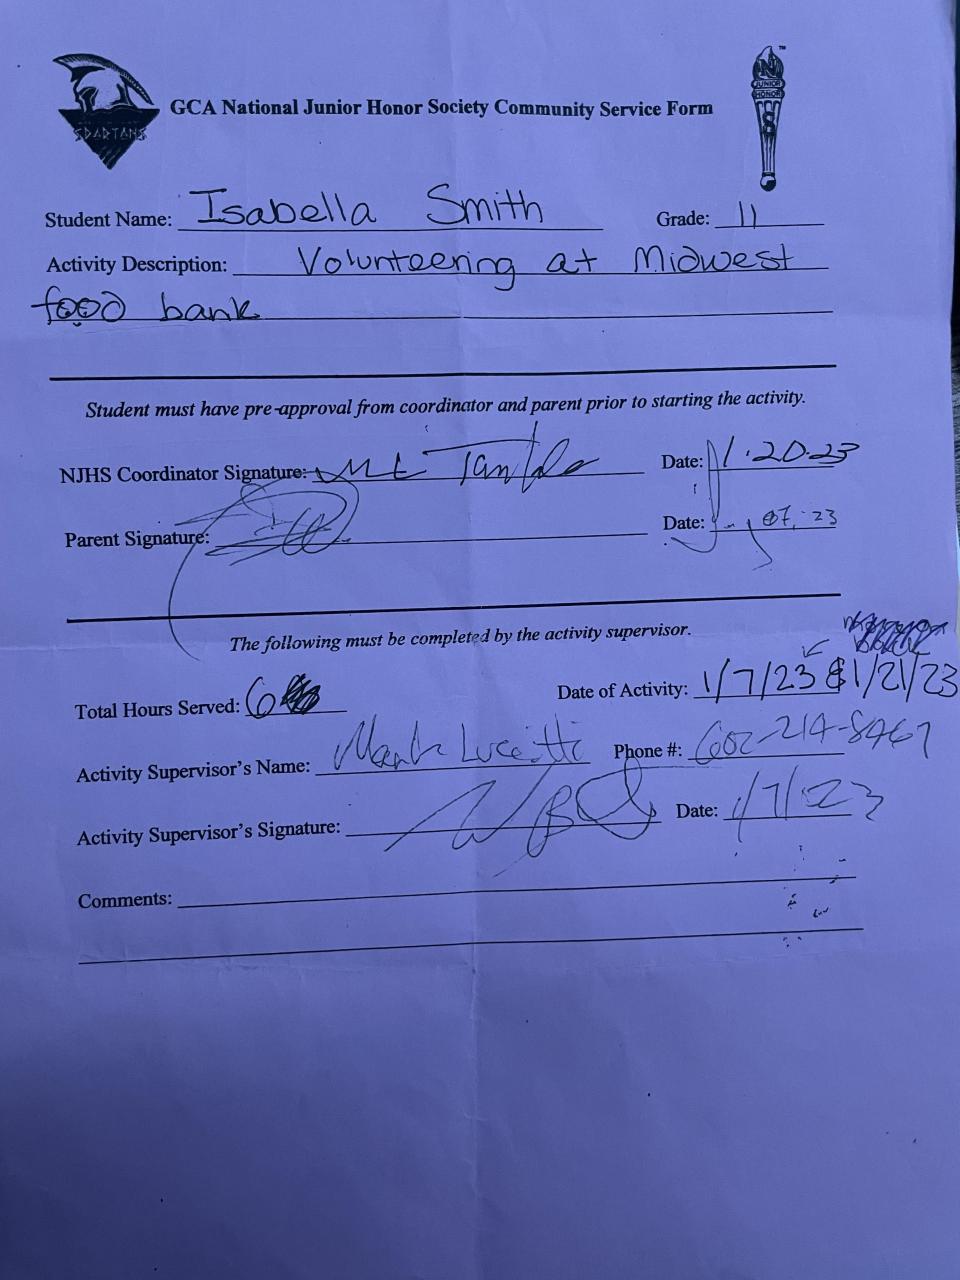 GCA National Junior Honor Society Community Service Form
SPARTANS
N
JUNIOR
HONOR
S
TM
Student Name: Isabella Smith Grade: 11
Activity Description: Volunteering at Midwest
food bank
Student must have pre-approval from coordinator and parent prior to starting the activity.
NJHS Coordinator Signature: Date: 1.20.23
Parent Signature: Date: 07, 23
The following must be completed by the activity supervisor.
Total Hours Served: 6 Date of Activity: 1/7/23 & 1/21/23
Activity Supervisor's Name: Mark Phone #: 602-214-8467
Activity Supervisor's Signature: Date: 1/7/23
Comments: